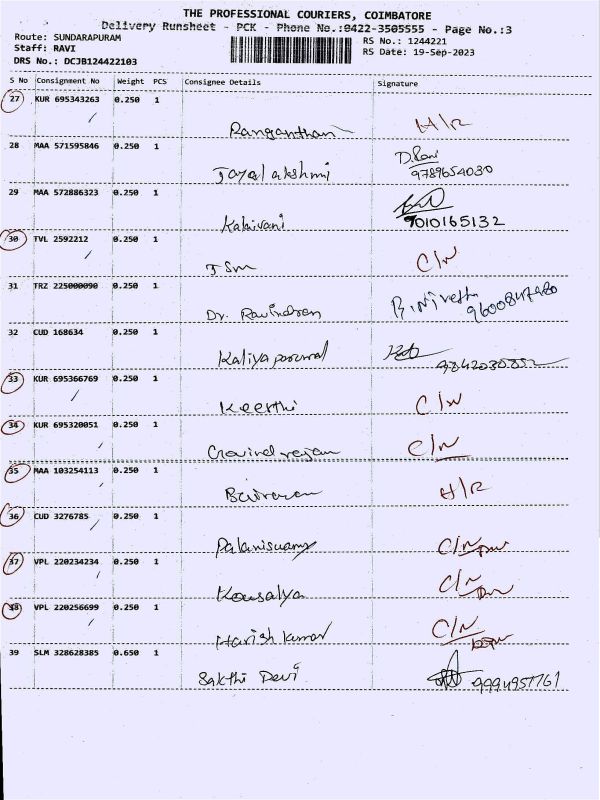 THE PROFESSIONAL COURIERS, COIMBATORE
Delivery Runsheet - PCK - Phone No.:0422-3505555 - Page No.:3
Route: SUNDARAPURAM
Staff: RAVI
DRS No.: DCJB124422103
RS No.: 1244221
RS Date: 19-Sep-2023
S No Consignment No Weight PCS Consignee Details Signature
27 KUR 695343263 0.250 1
Ranganthan H/R
28 MAA 571595846 0.250 1
Jayalakshmi D.Rani
9789654030
29 MAA 572886323 0.250 1
Kalaivani 9010165132
30 TVL 2592212 0.250 1
JSM C/N
31 TRZ 225000090 0.250 1
Dr. Ravindran
32 CUD 168634 0.250 1
Kaliyaperumal 9842030852
33 KUR 695366769 0.250 1
Keerthi C/N
34 KUR 695320051 0.250 1
Govind rajan C/N
35 MAA 103254113 0.250 1
H/R
36 CUD 3276785 0.250 1
Palaniswamy C/N
37 VPL 220234234 0.250 1
Kousalya C/N
38 VPL 220256699 0.250 1
Harish kumar C/N
39 SLM 328628385 0.650 1
Sakthi Devi 9994957761